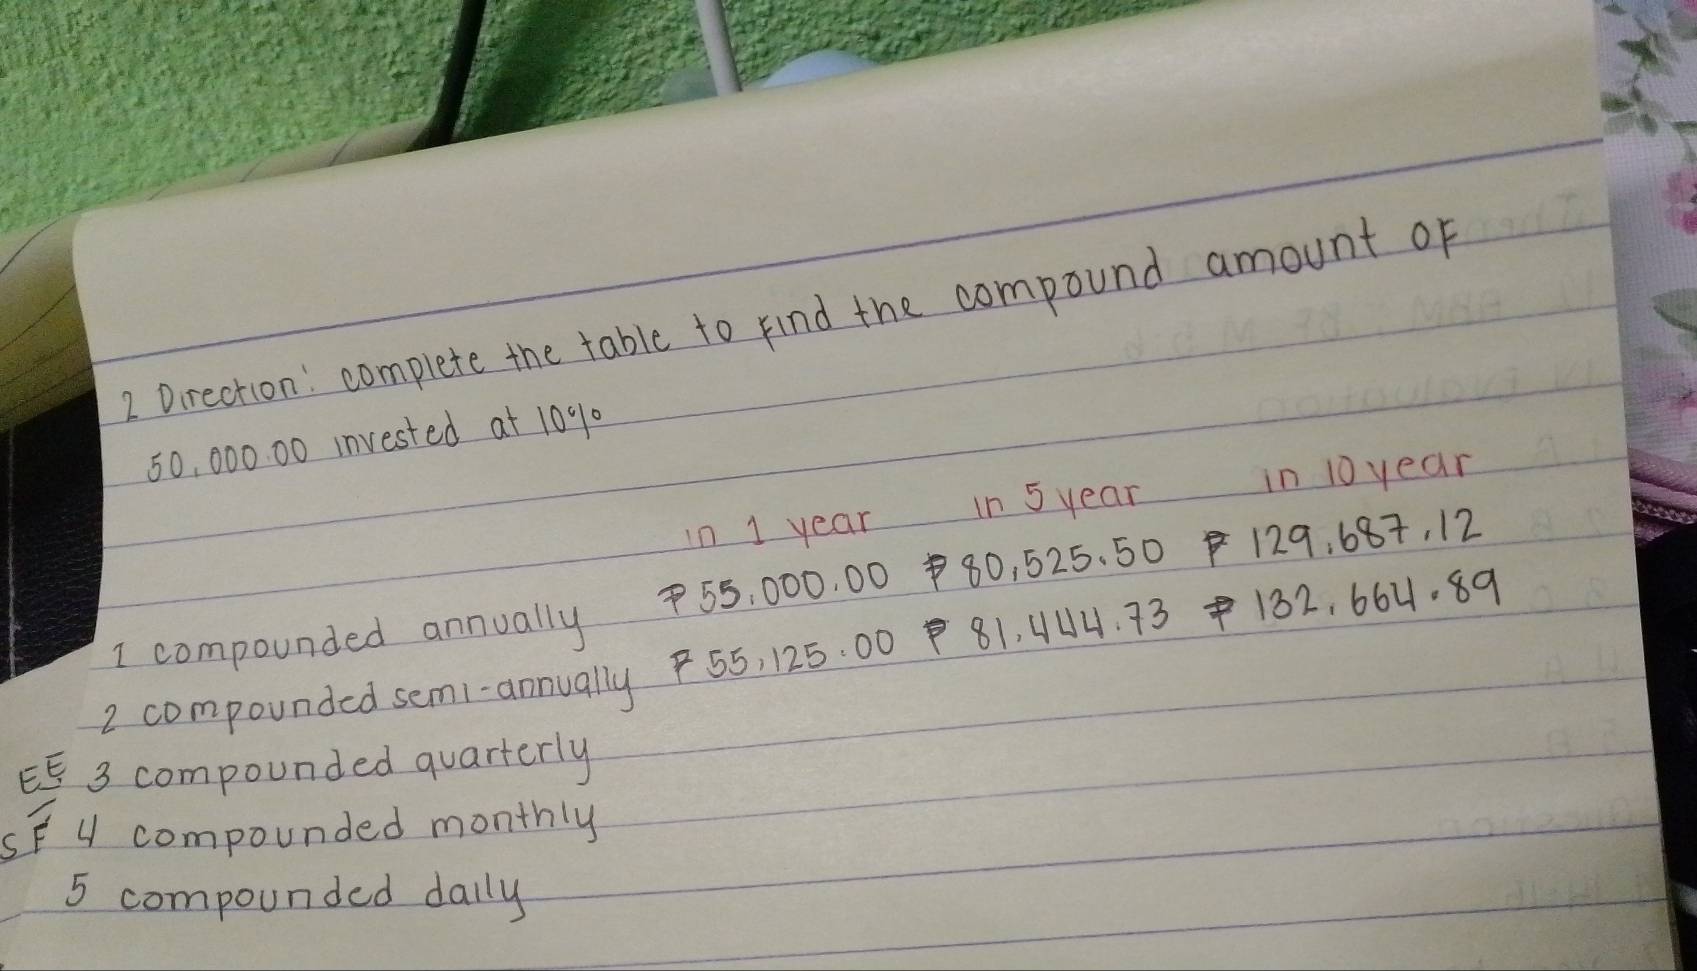 2 Direction: complete the table to find the compound amount of
50,000.00 invested at 10%
in 1 year in 5 year in 10 year
1 compounded annually ₱55,000.00 ₱80,525.50 ₱129,687.12
2 compounded semi-annually ₱55,125.00 ₱81,444.73 ₱132,664.89
3 compounded quarterly
4 compounded monthly
5 compounded daily